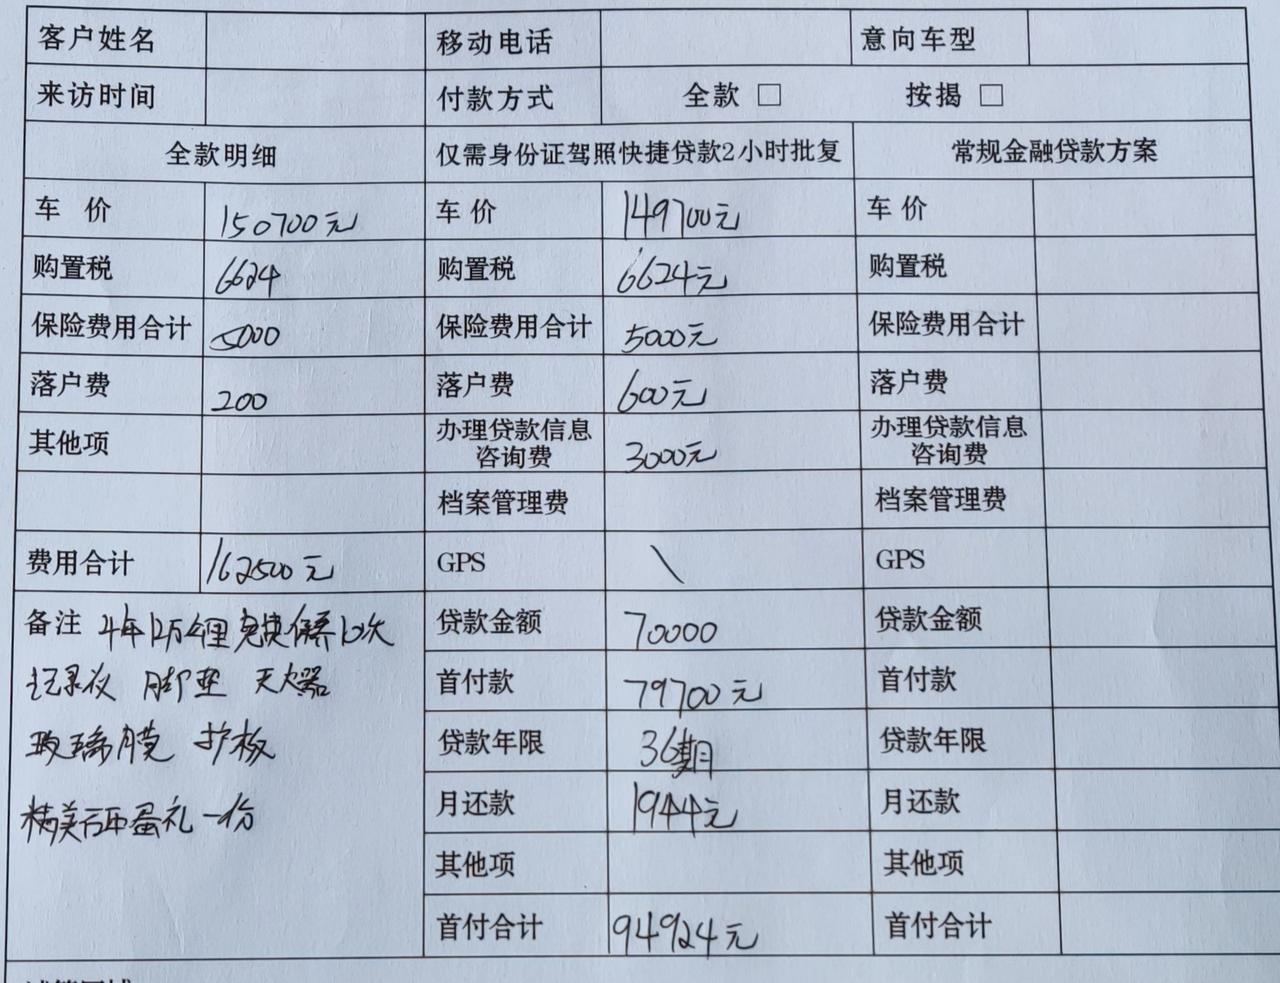 客户姓名 移动电话 意向车型
来访时间 付款方式 全款 □ 按揭 □
全款明细 仅需身份证驾照快捷贷款2小时批复 常规金融贷款方案
车 价 150700元 车 价 149700元 车 价
购置税 6624 购置税 6624元 购置税
保险费用合计 5000 保险费用合计 5000元 保险费用合计
落户费 200 落户费 600元 落户费
其他项 办理贷款信息咨询费 3000元 办理贷款信息咨询费
档案管理费 档案管理费
费用合计 162500元 GPS \ GPS
备注 4年12万公里 保养10次 贷款金额 70000 贷款金额
记录仪 脚垫 灭火器 首付款 79700元 首付款
玻璃膜 护板 贷款年限 36期 贷款年限
精美 礼一份 月还款 1944元 月还款
其他项 其他项
首付合计 94924元 首付合计